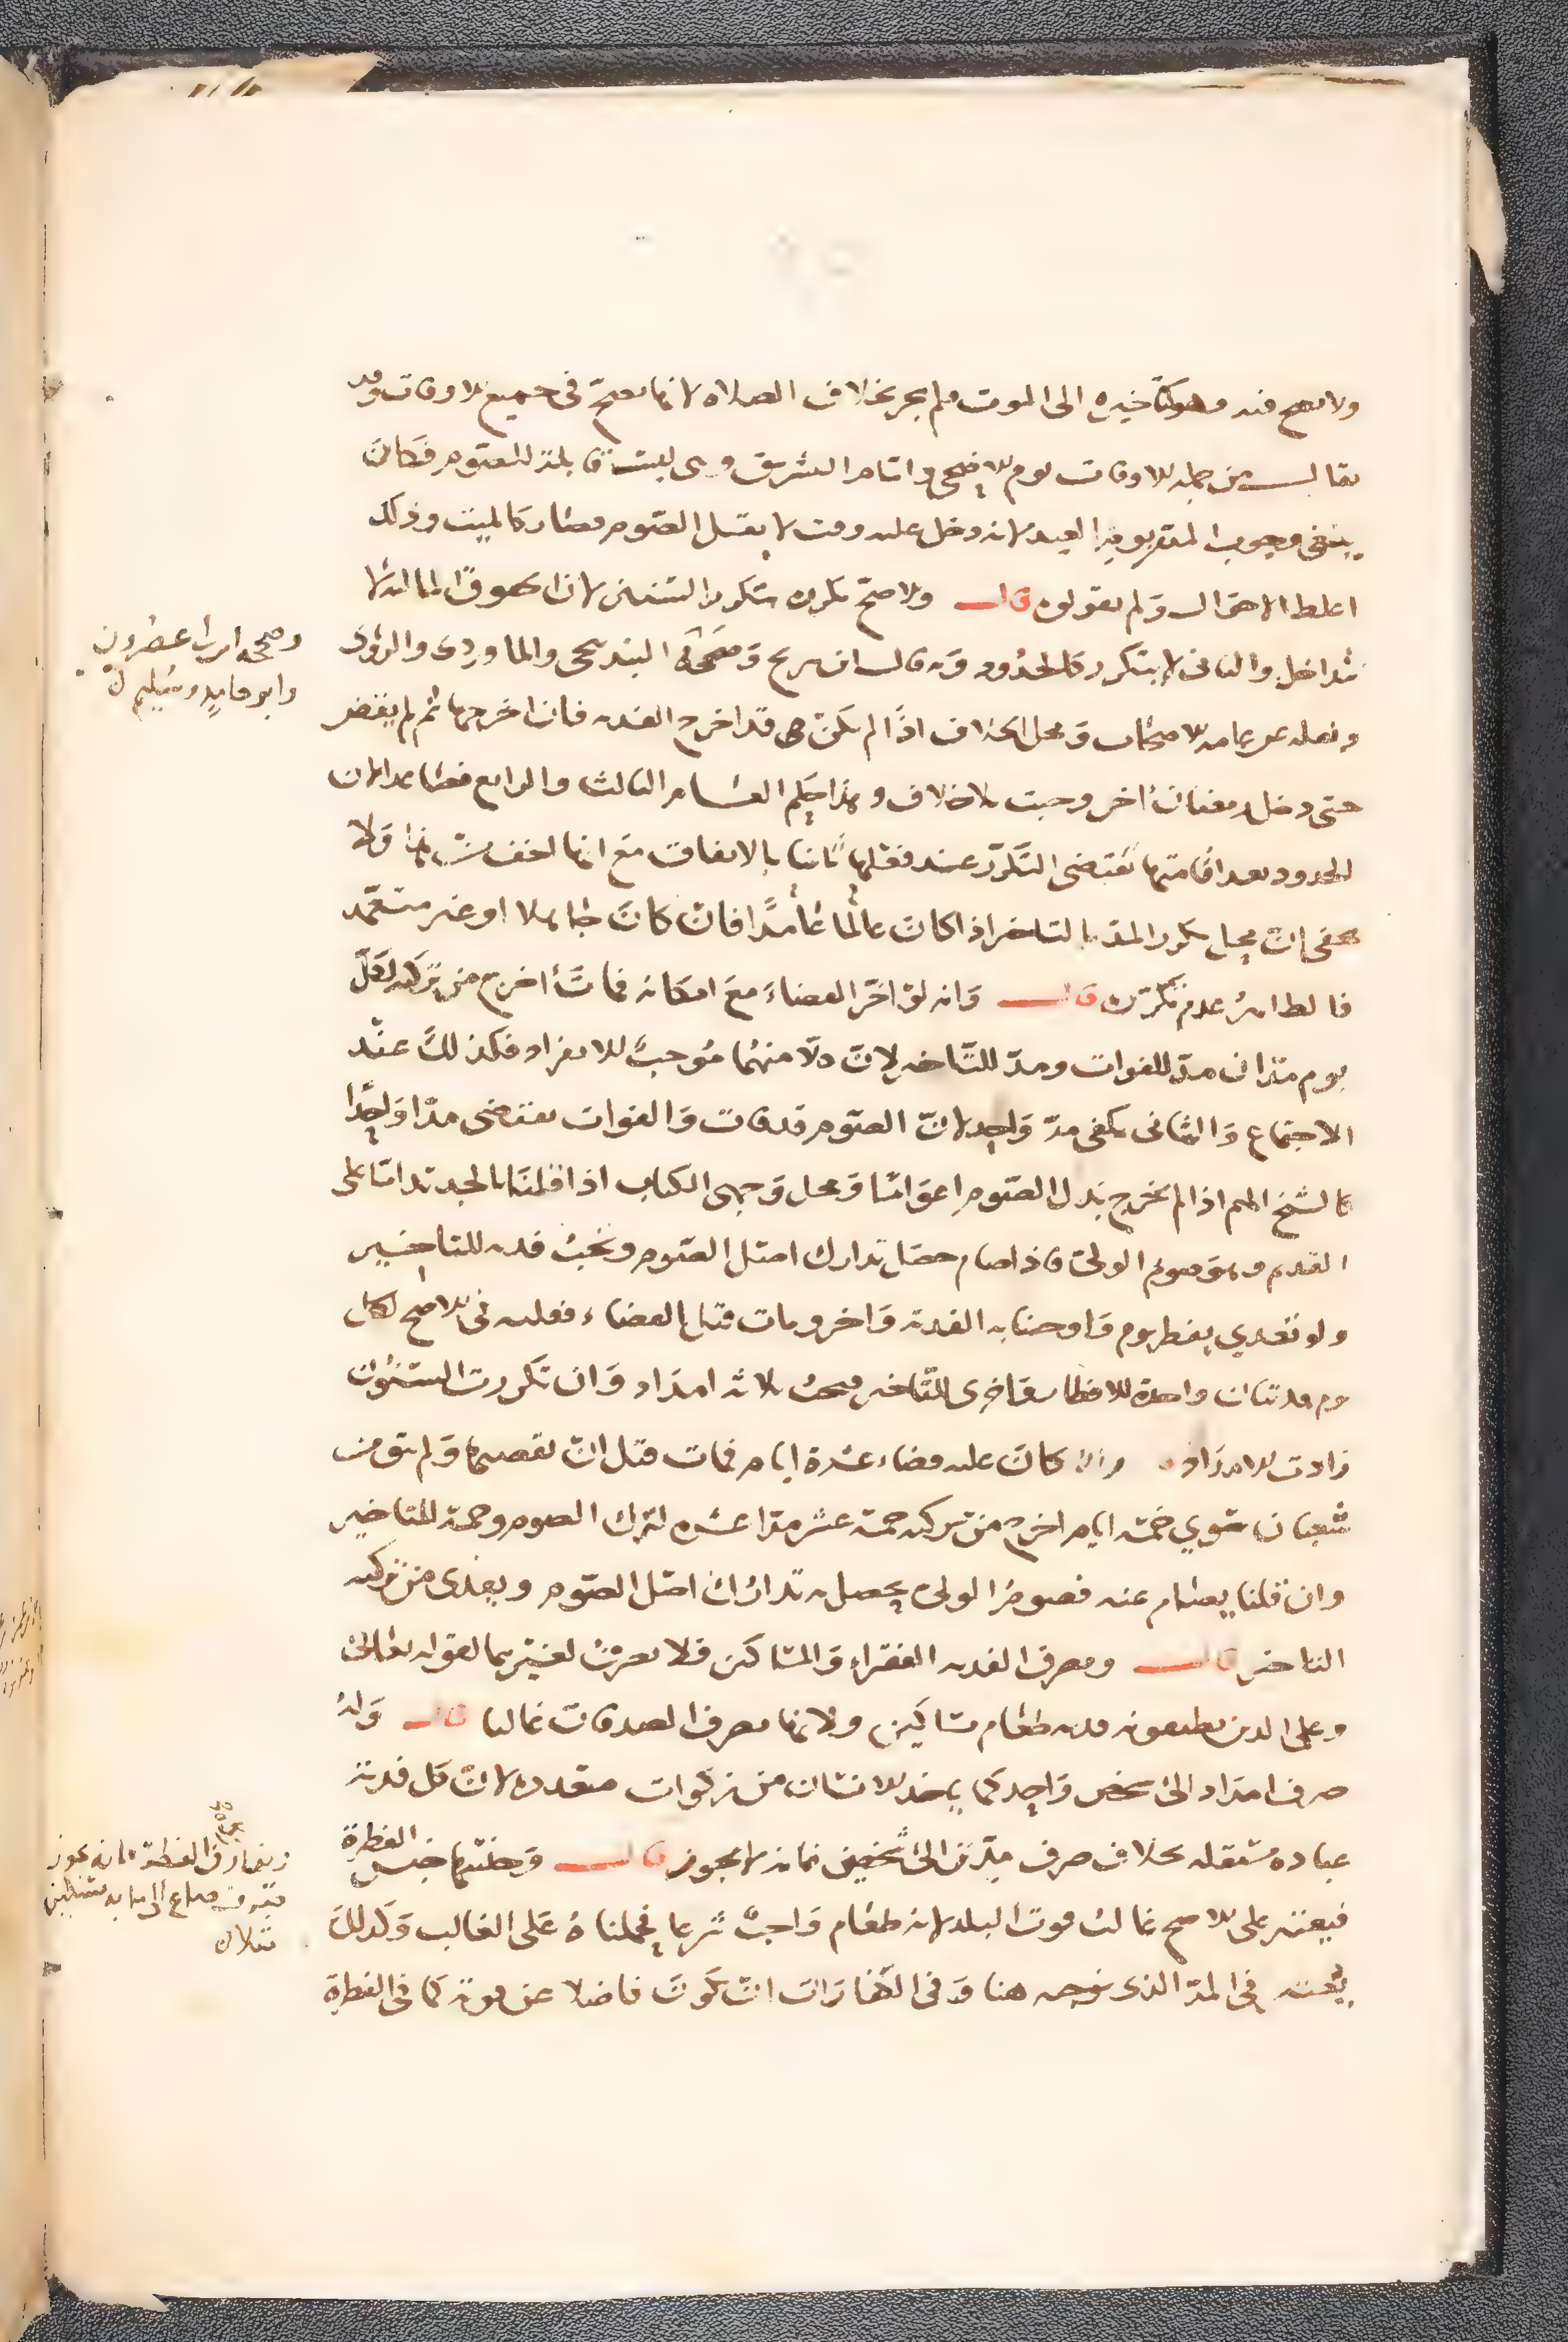 ولا يصح فيه فهو كتأخيره الى الموت فلم يجر بخلاف الصلاه لانها تصح فى جميع الاوقات وقد
يقال من جمله الاوقات يوم الاضحى وايام التشريق وهى ليست قابلة للصوم فكان
ينبغى وجوب المد بيوم العيد لانه دخل عليه وقت لا يقبل الصوم فصار كالميت وذلك
اغلط الاحوال ولم يقولوه قال والاصح تكرره بتكرر السنين لان الحقوق الماليه لا
تتداخل والثانى لا يتكرر كالحدود وبه قال ابن سريج وصححه البندنيجى والماوردى والرويانى
وصححه ابن ابى عصرون
وابو حامد وسليم
ونقله عن عامه الاصحاب ومحل الخلاف اذا لم يكن قد اخرج الفديه فان اخرجها ثم لم يقض
حتى دخل رمضان آخر وجبت بلا خلاف وهذا حكم العام الثالث والرابع فصاعدا لان
الحدود بعد اقامتها تقتضى التكرر عند فعلها ثانيا بالاتفاق مع انها اخف من هذا ولا
يخفى ان محل تكرر المد بالتاخير اذا كان عالما عامدا فان كان جاهلا او غير متعمد
فالظاهر عدم تكرره قال وانه لو اخر القضاء مع امكانه فمات أخرج من تركته لكل
يوم مدان مد للفوات ومد للتاخير لان كلا منهما موجب للانفراد فكذلك عند
الاجتماع والثانى يكفى مد واحد لان الصوم قد فات والفوات يقتضى مدا واحدا
كالشيخ الهم اذا لم يخرج بدل الصوم اعواما ومحل وجهى الكتاب اذا قلنا بالجديد اما على
القديم وهو صوم الولى فاذا صام حصل تدارك اصل الصوم وتجب فديه للتاخير
ولو تعدى بفطر يوم واوجبنا به الفدية واخر ومات قبل القضاء فعليه فى الاصح لكل
يوم فديتان واحدة للافطار واخرى للتاخير وتجب ثلاثه امداد وان تكررت السنون
زادت الامداد وان كان عليه قضاء عشرة ايام فمات قبل ان يقضيها ولم يبق من
شعبان سوى خمسة ايام اخرج من تركته خمسة عشر مدا عشره لترك الصوم وخمسة للتاخير
وان قلنا يصام عنه فصوم الولى يحصل به تدارك اصل الصوم ويفدى من تركته
التاخير قال ومصرف الفديه الفقراء والمساكين فلا يصرف لغيرهما لقوله تعالى
وعلى الذين يطيقونه فديه طعام مساكين ولانها مصرف الصدقات غالبا قال وله
صرف امداد الى شخص واحد كما ياخذ الانسان من زكوات متعدده لان كل فدية
عباده مستقله بخلاف صرف مد الى شخصين فانه لا يجوز قال وجنسها جنس الفطرة
فى الفطرة فانه يجوز
صرف صاع الى مايه مسكين
فيعتبر على الاصح غالب قوت البلد لانه طعام واجب شرعا فحملناه على الغالب وكذلك
يعتبر فى المد الذى نوجبه هنا وفى الكفارات ان يكون فاضلا عن قوته كما فى الفطرة